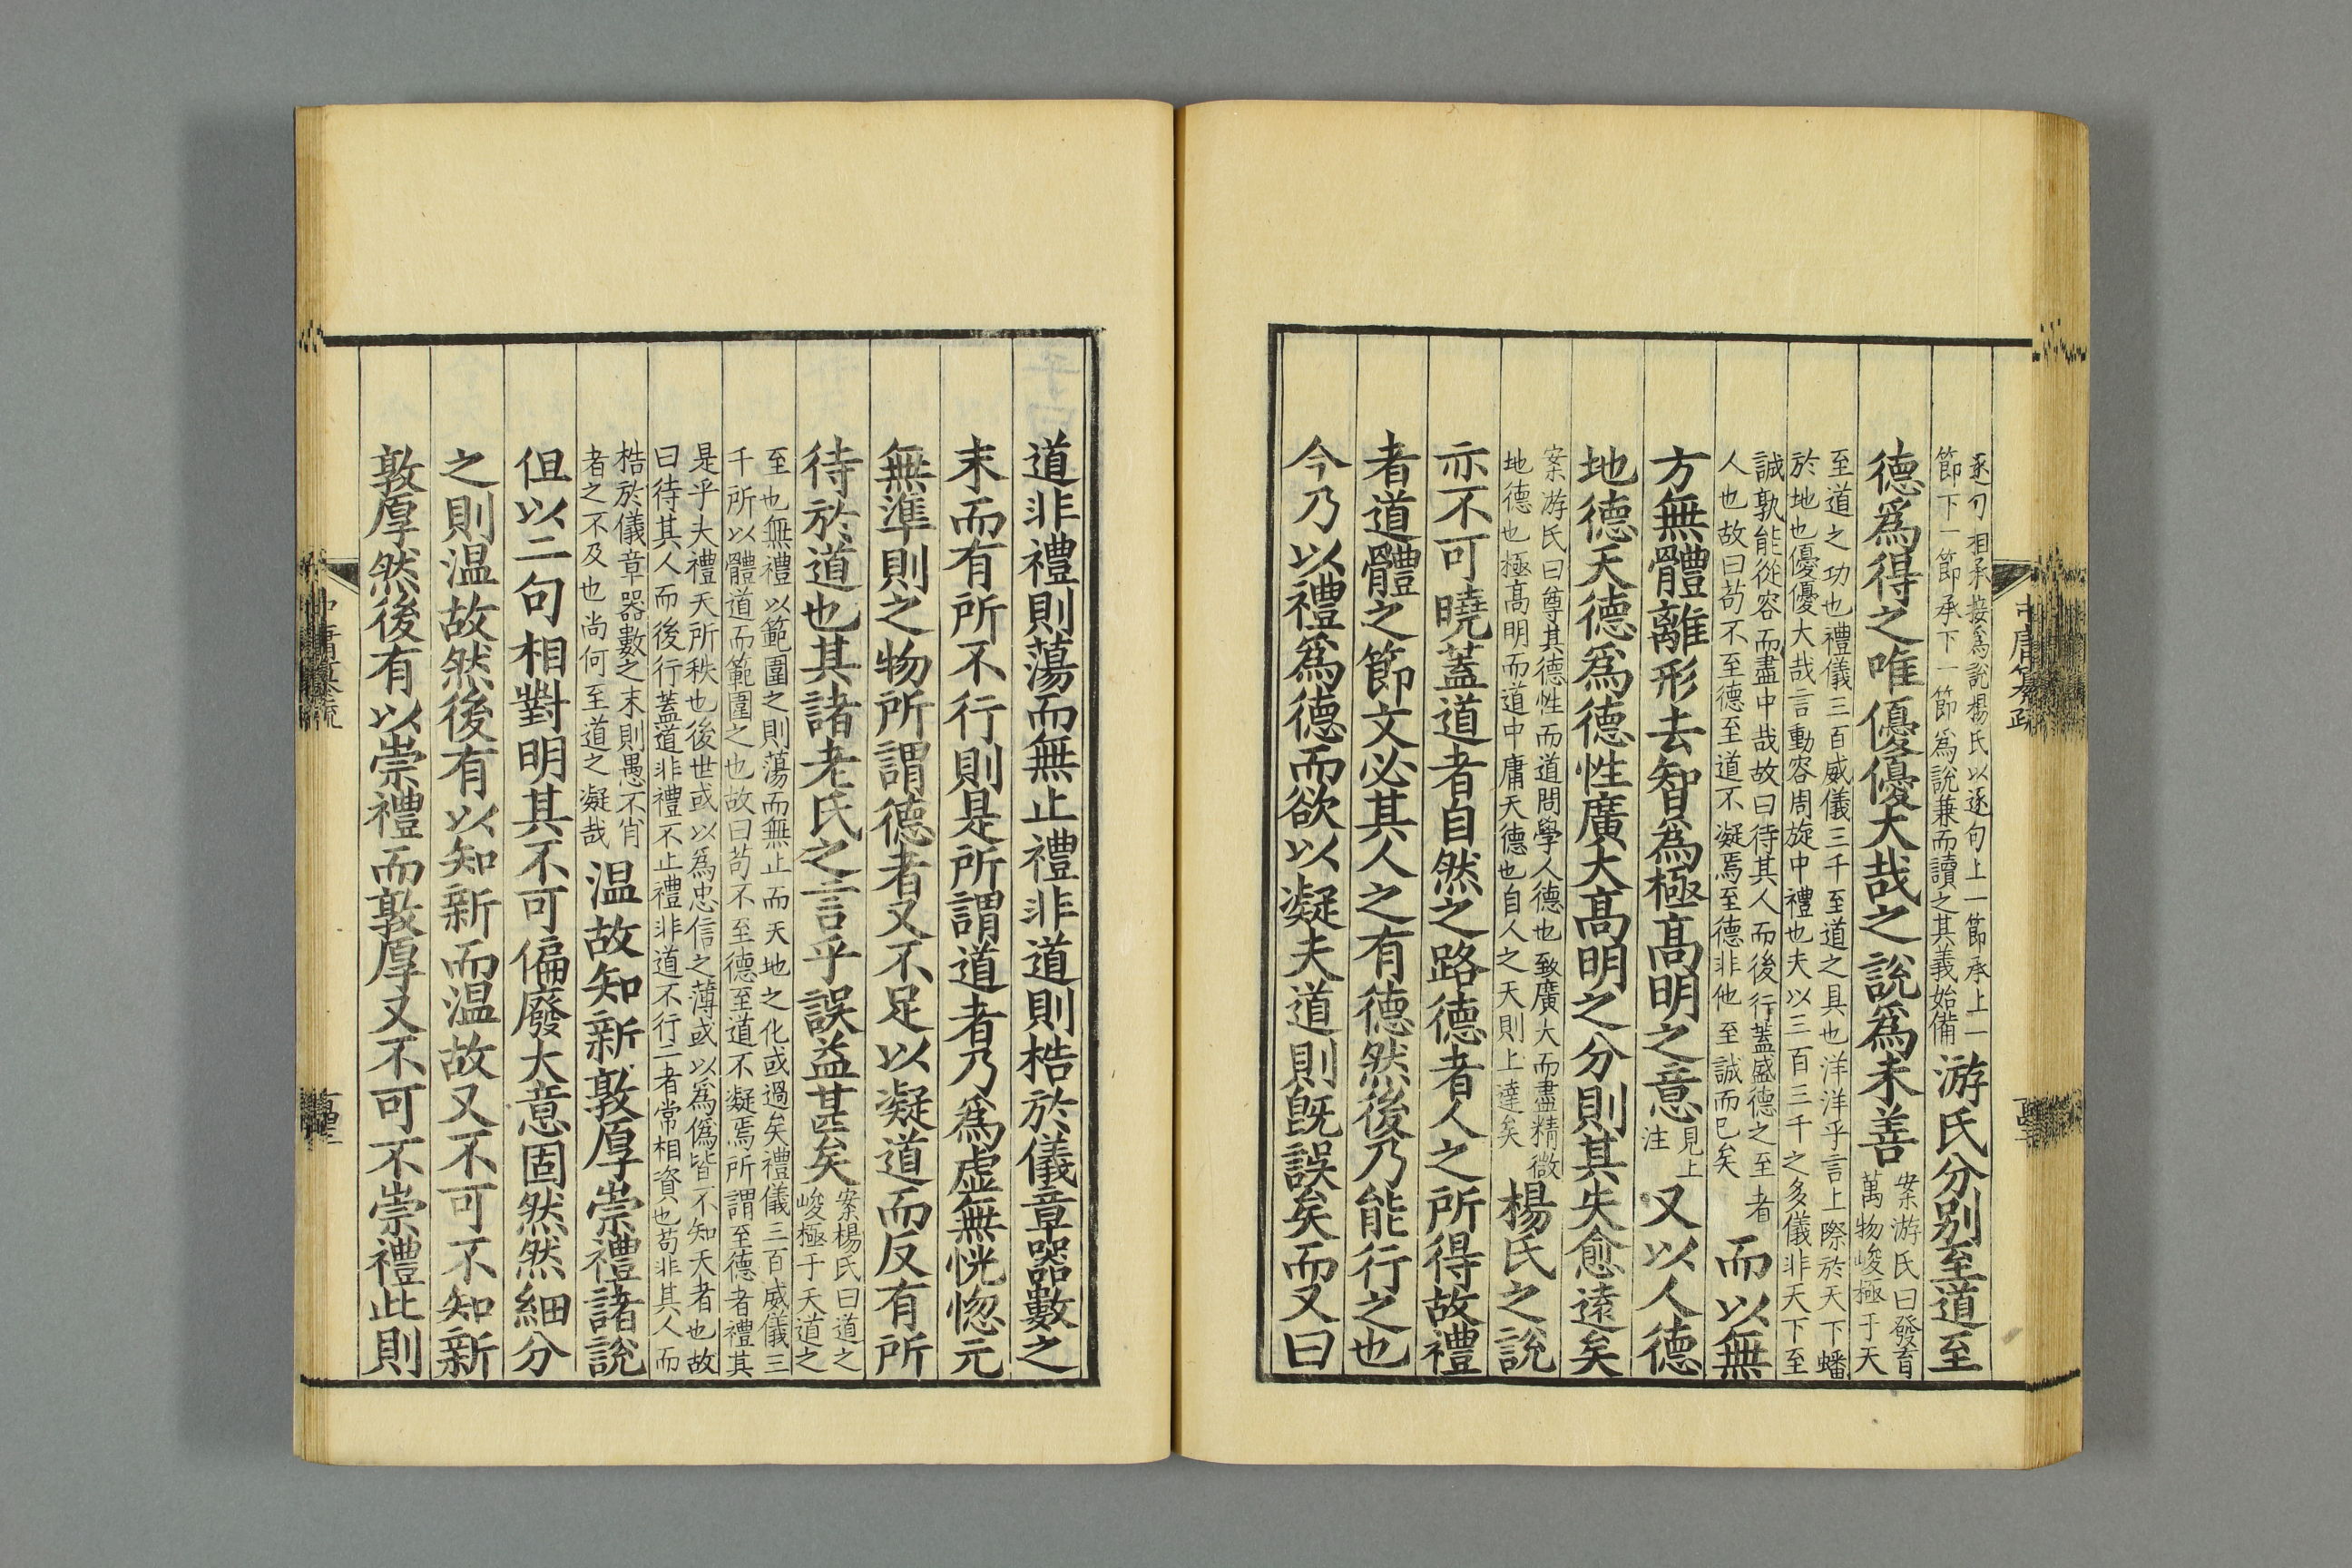 逐句相承接爲說楊氏以逐句上一節承上一
節下一節承下一節爲說兼而讀之其義始備
游氏分別至道至
德爲得之唯優優大哉之說爲未善
案游氏曰發育
萬物峻極于天
至道之功也禮儀三百威儀三千至道之具也洋洋乎言上際於天下蟠
於地也優優大哉言動容周旋中禮也夫以三百三千之多儀非天下至
誠孰能從容而盡中哉故曰待其人而後行蓋盛德之至者
人也故曰苟不至德至道不凝焉至德非他至誠而已矣
而以無
方無體離形去智爲極髙明之意
見上
注
又以人德
地德天德爲德性廣大髙明之分則其失愈遠矣
案游氏曰尊其德性而道問學人德也致廣大而盡精微
地德也極髙明而道中庸天德也自人之天則上達矣
楊氏之說
亦不可曉蓋道者自然之路德者人之所得故禮
者道體之節文必其人之有德然後乃能行之也
今乃以禮爲德而欲以凝夫道則旣誤矣而又曰
道非禮則蕩而無止禮非道則梏於儀章器數之
末而有所不行則是所謂道者乃爲虚無恍惚元
無準則之物所謂德者又不足以凝道而反有所
待於道也其諸老氏之言乎誤益甚矣
案楊氏曰道之
峻極于天道之
至也無禮以範圍之則蕩而無止而天地之化或過矣禮儀三百威儀三
千所以體道而範圍之也故曰苟不至德至道不凝焉所謂至德者禮其
是乎夫禮天所秩也後世或以爲忠信之薄或以爲僞皆不知天者也故
曰待其人而後行蓋道非禮不止禮非道不行二者常相資也苟非其人而
梏於儀章器數之末則愚不肖
者之不及也尚何至道之凝哉
温故知新敦厚崇禮諸說
但以二句相對明其不可偏廢大意固然然細分
之則温故然後有以知新而温故又不可不知新
敦厚然後有以崇禮而敦厚又不可不崇禮此則